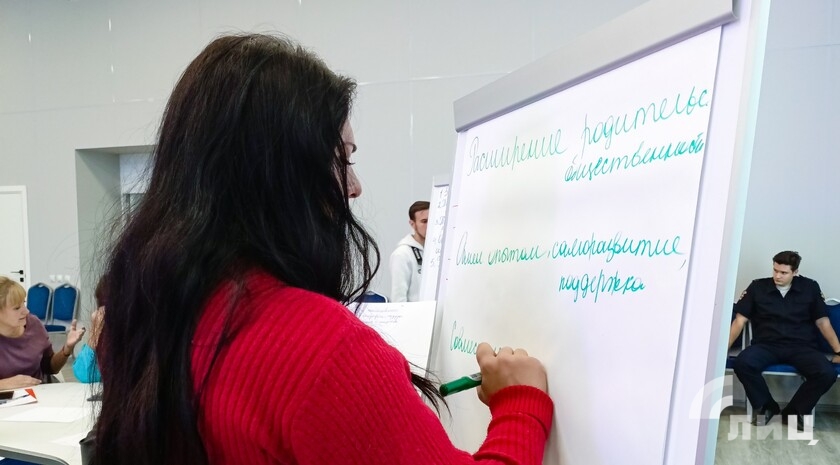 Расширение родительс.
общественной
Обмен опытом, саморазвитие,
поддержка
Совмес
лиц